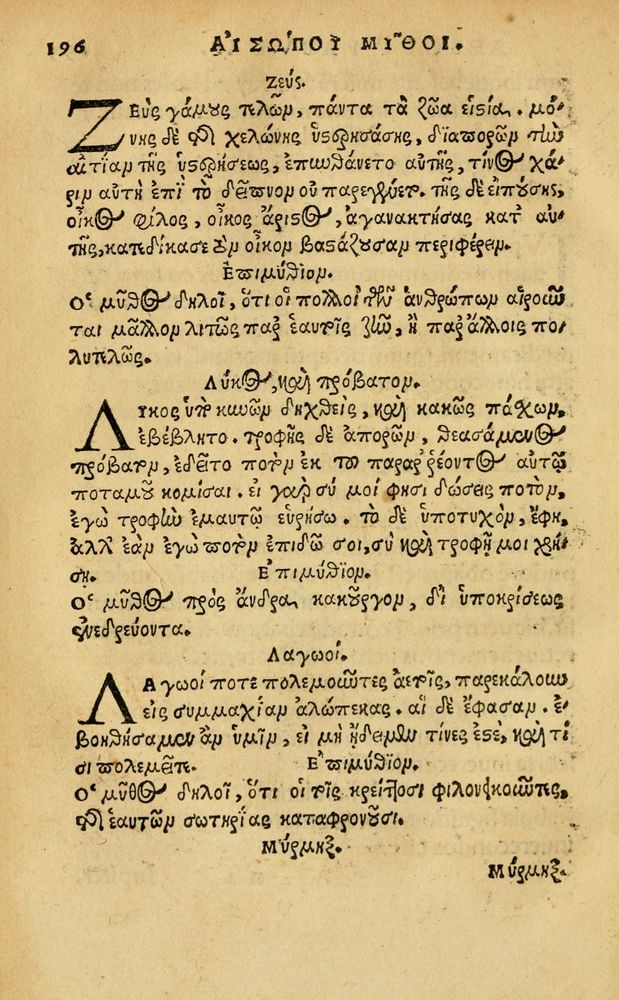 196 ΑΙΣΩΠΟΥ ΜΥ͂ΘΟΙ.
Ζεύς.
ΖΕὺς γάμους τελῶν, πάντα τὰ ζῶα εἱστία. μό-
νης δὲ τῆς χελώνης ὑστερησάσης, διαπορῶν τὴν
αἰτίαν τῆς ὑστερήσεως, ἐπυνθάνετο αὐτῆς, τίνος χά-
ριν αὐτὴ ἐπὶ τὸ δεῖπνον οὐ παρεγένετο. τῆς δὲ εἰπούσης,
οἶκος φίλος, οἶκος ἄριστος, ἀγανακτήσας κατ' αὐ-
τῆς, κατεδίκασε τὸν οἶκον βαστάζουσαν περιφέρειν.
Ἐπιμύθιον.
Ὁ μῦθος δηλοῖ, ὅτι οἱ πολλοὶ τῶν ἀνθρώπων αἱροῦν
ται μᾶλλον λιτῶς παρ' ἑαυτοῖς ζῆν, ἢ παρ' ἄλλοις πο-
λυτελῶς.
Λύκος, καὶ πρόβατον.
ΛΥκος ὑπὸ κυνῶν δηχθεὶς, καὶ κακῶς πάσχων,
ἐβέβλητο. τροφῆς δὲ ἀπορῶν, θεασάμενος
πρόβατον, ἐδεῖτο ποτὸν ἐκ τοῦ παραρρέοντος αὐτῷ
ποταμοῦ κομίσαι. εἰ γὰρ σύ μοί φησι δώσεις ποτὸν,
ἐγὼ τροφὴν ἐμαυτῷ εὑρήσω. τὸ δὲ ὑποτυχὸν, ἔφη,
ἀλλ' ἐὰν ἐγὼ ποτὸν ἐπιδῶ σοι, σὺ καὶ τροφῇ μοι χρή-
σῃ. Ἐπιμύθιον.
Ὁ μῦθος πρὸς ἄνδρα κακοῦργον, δι' ὑποκρίσεως
ἐνεδρεύοντα.
Λαγωοί.
ΛΑγωοί ποτε πολεμοῦντες ἀετοῖς, παρεκάλουν
εἰς συμμαχίαν ἀλώπεκας. αἱ δὲ ἔφασαν. ἐ-
βοηθήσαμεν ἂν ὑμῖν, εἰ μὴ ᾔδειμεν τίνες ἐστὲ, καὶ τί
σι πολεμεῖτε. Ἐπιμύθιον.
Ὁ μῦθος δηλοῖ, ὅτι οἱ τοῖς κρείττοσι φιλονεικοῦντες,
τῆς ἑαυτῶν σωτηρίας καταφρονοῦσι.
Μύρμηξ.
Μύρμηξ.